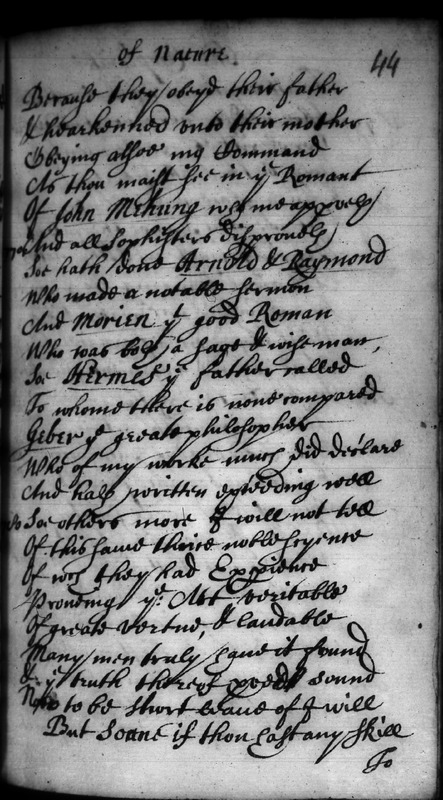 of Nature.
44
Because they obeyd their father
& hearkenned vnto their mother
Obeying allsoe my Command
As thou maist see in ye Romant
Of John Mehung wch me approves
And all sophisters disproves
Soe hath done Arnold & Raymond
Who made a notable sermon
And Morien ye good Roman
Who was both a sage & wise man,
Soe Hermes ye father called
To whome there is none compared
Geber ye greate philosopher
Who of my worke much did declare
And hath written exceeding well
Soe others more I will not tell
Of this same thrice noble scyence
Of wch they had Expeience
Proueing ye Art veritable
Of greate vertue, & laudable
Many men truly have it found
& ye truth thereof sound
Now to be short leaue of I will
But Sonne if thou hast any skill
To